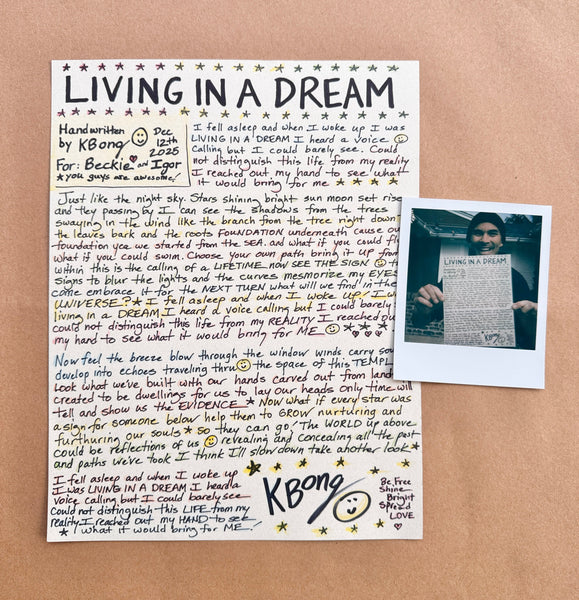 LIVING IN A DREAM
Handwritten
by KBong
Dec
12th
2025
For: Beckie and Igor
you guys are awesome!
I fell asleep and when I woke up I was
LIVING IN A DREAM I heard a voice
Calling but I could barely see. Could
not distinguish this life from my reality
I reached out my hand to see what
it would bring for me
Just like the night sky. Stars shining bright sun moon set rise
and they passing by I can see the shadows from the trees
swaying in the wind like the branch from the tree right down
the leaves bark and the roots FOUNDATION underneath cause our
foundation yea we started from the SEA. and what if you could fly
what if you could swim. Choose your own path bring it up from
within this is the calling of a LIFETIME now SEE THE SIGN
Signs to blur the lights and the curves mesmorize my EYES
come embrace it for the NEXT TURN what will we find in the
UNIVERSE? I fell asleep and when I woke up I w
living in a DREAM I heard a voice calling but I could barely
could not distinguish this life from my REALITY I reached out
my hand to see what it would bring for ME
Now feel the breeze blow through the window winds carry sou
develop into echoes traveling thru the space of this TEMPL
Look what we've built with our hands carved out from land
created to be dwellings for us to lay our heads Only time will
tell and show us the EVIDENCE Now what if every star was
a sign for someone below help them to GROW nurturing and
furthuring our souls so they can go! The WORLD up above
could be reflections of us revealing and concealing all the past
and paths we've took I think I'll slow down take another look
I fell asleep and when I woke up
I was LIVING IN A DREAM I heard a
voice calling but I could barely see
Could not distinguish this LIFE from my
reality I reached out my HAND to see
what it would bring for ME!
KBong
Be Free
Shine
Bright
Spread
LOVE
LIVING IN A DREAM
KBong